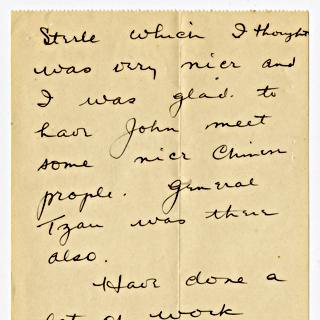 Steele which I thought
was very nice and
I was glad. to
have John meet
some nice Chinese
people. General
Tzau was there
also.
Have done a
lot of work